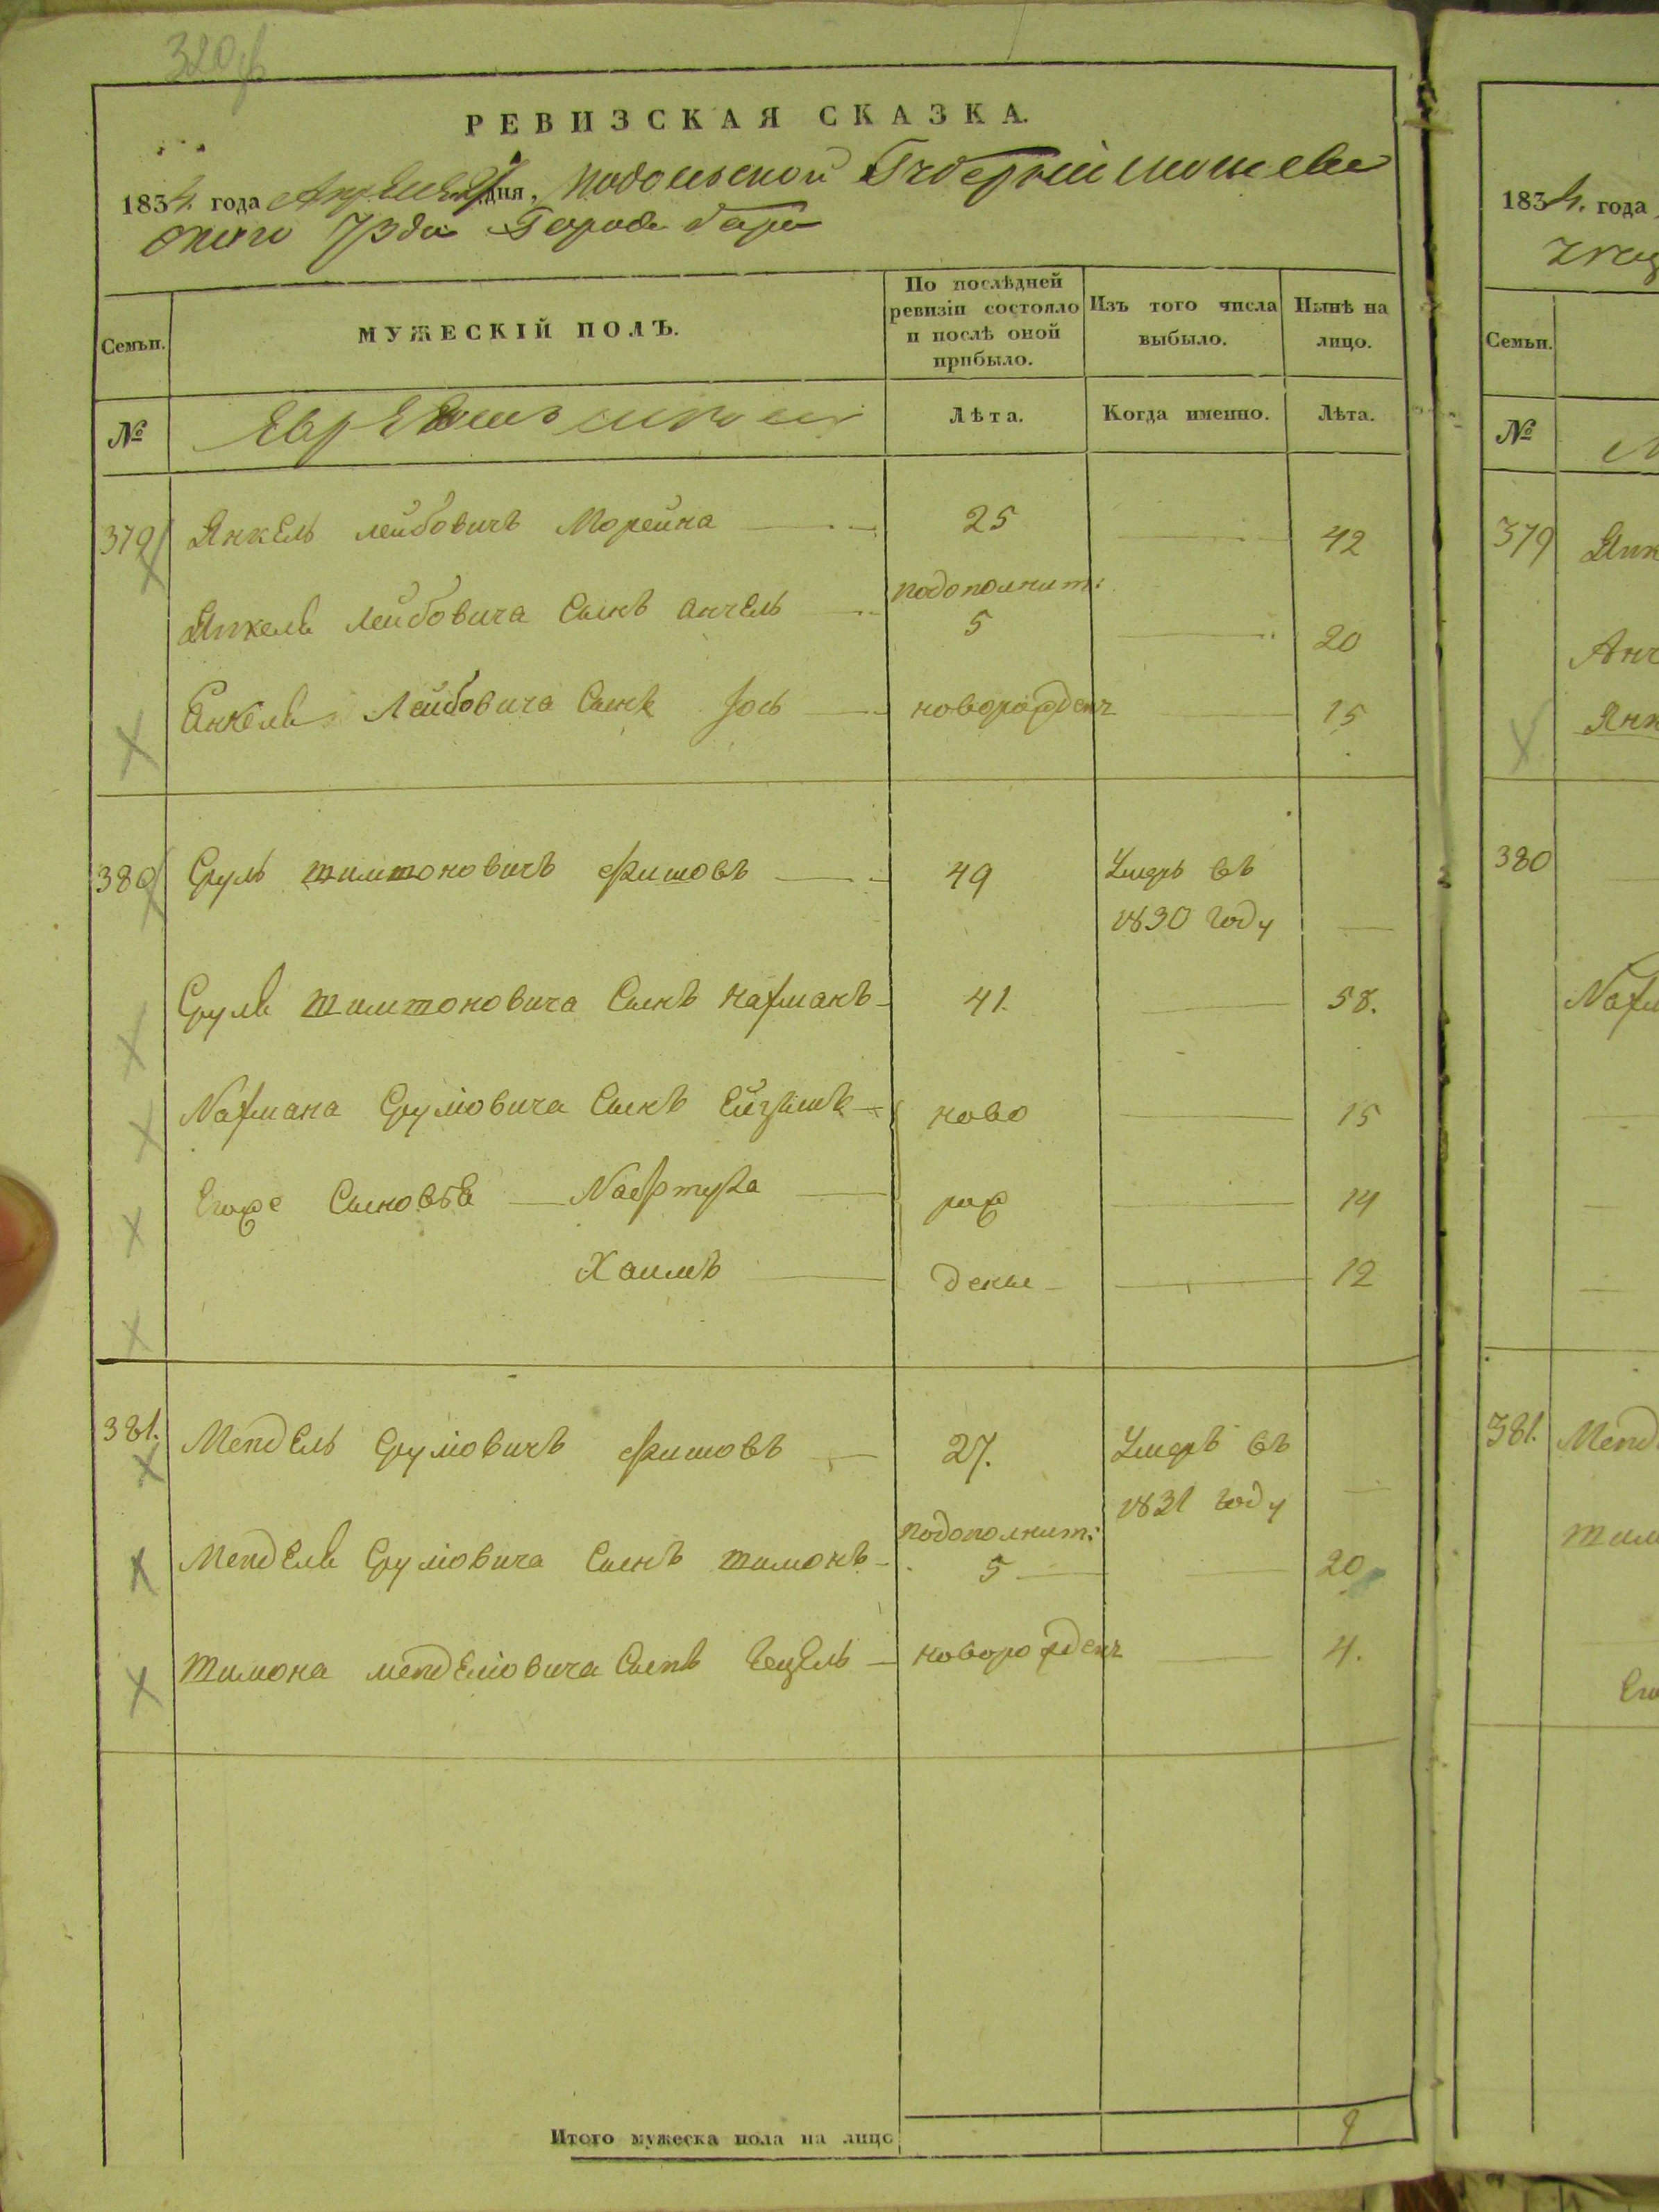 320
РЕВИЗСКАЯ СКАЗКА.
1834. года Апреля дня, Подольской Губернии Могилев
ского уезда Города Бара
Семьи.
МУЖЕСКІЙ ПОЛЪ.
По послѣдней ревизіи состояло и послѣ оной прибыло.
Изъ того числа выбыло.
Нынѣ на лицо.
№
Лѣта.
Когда именно.
Лѣта.
379 Янкель Лейбовичъ Морейна 25 42
Янкеля Лейбовича Сынъ Анчель подополнит: 5 20
Янкеля Лейбовича Сынъ Іось новорожденъ 15
380 Сруль Шимшоновичъ Фишовъ 49 Умеръ въ
1830 году
Сруля Шимшоновича Сынъ Нахманъ 41. 58.
Нахмана Срулiовича Сынъ ново 15
Егоже Сыновья Нафтула рож 14
Хаимъ дены 12
381. Мендель Срулiовичъ Фишовъ 27. Умеръ въ
1831 году
Менделя Срулiовича Сынъ Шимонъ подополнит: 5 20
Шимона Менделiовича Сынъ Гецель новорожденъ 4.
Итого мужеска пола на лицо
1834. года
Семьи.
№
379 Янк
Анч
Янк
380
Нахм
381. Менд
Шим
Его